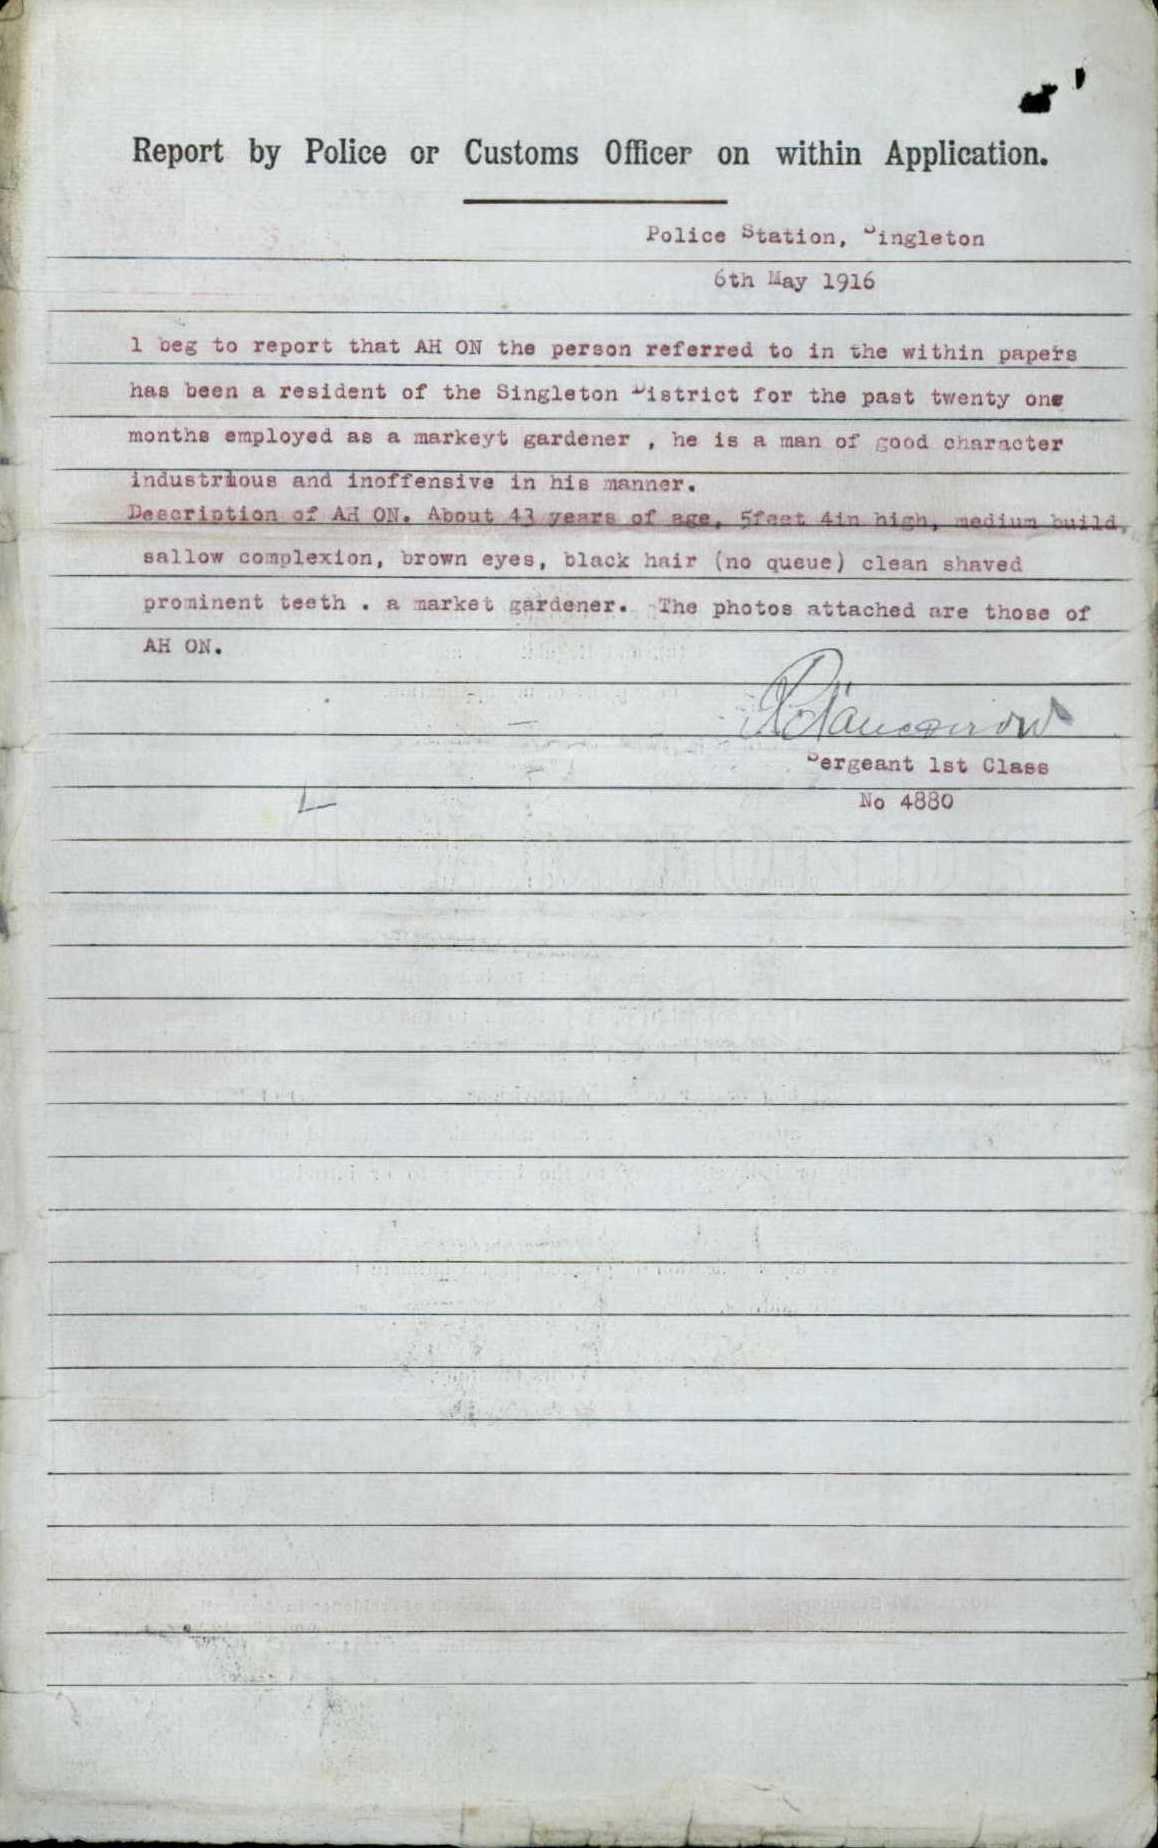 Report by Police or Customs Officer on within Application.
Police Station, Singleton
6th May 1916
1 beg to report that AH ON the person referred to in the within papers
has been a resident of the Singleton District for the past twenty one
months employed as a markeyt gardener , he is a man of good character
industrious and inoffensive in his manner.
Description of AH ON. About 43 years of age, 5feet 4in high, medium build,
sallow complexion, brown eyes, black hair (no queue) clean shaved
prominent teeth . a market gardener. The photos attached are those of
AH ON.
Sergeant 1st Class
No 4880